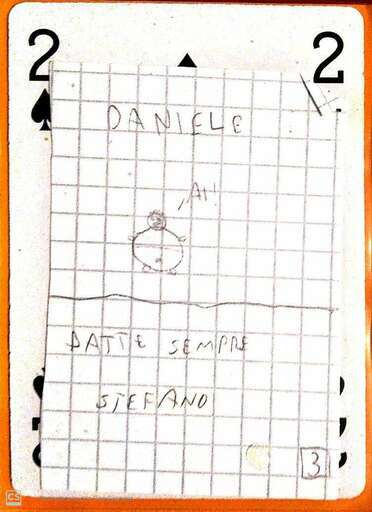 2 2
DANIELE
, AI!
BATTE SEMPRE
STEFANO
3
CS